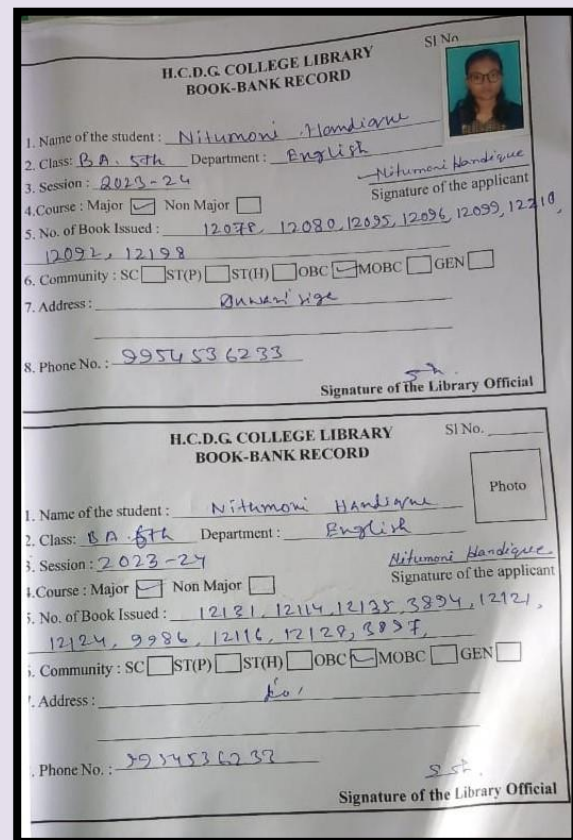 Sl No
H.C.D.G. COLLEGE LIBRARY
BOOK-BANK RECORD
1. Name of the student : Nitumoni Handique
2. Class: B A. 5th Department : English
3. Session : 2023-24
Nitumoni Handique
Signature of the applicant
4.Course : Major Non Major
5. No. of Book Issued : 12078, 12080, 12095, 12096, 12099, 12210,
12092, 12198
6. Community : SC ST(P) ST(H) OBC MOBC GEN
7. Address :
8. Phone No. : 9954536233
Signature of the Library Official
H.C.D.G. COLLEGE LIBRARY
BOOK-BANK RECORD
Sl No.
Photo
1. Name of the student : Nitumoni Handique
2. Class: B A Department : English
3. Session : 2023-24
Nitumoni Handique
Signature of the applicant
4.Course : Major Non Major
5. No. of Book Issued : 12131, 12114, 12135, 3894, 12121,
12124, 9986, 12116, 12128, 3897,
Community : SC ST(P) ST(H) OBC MOBC GEN
Address :
Phone No. : 9954536233
Signature of the Library Official